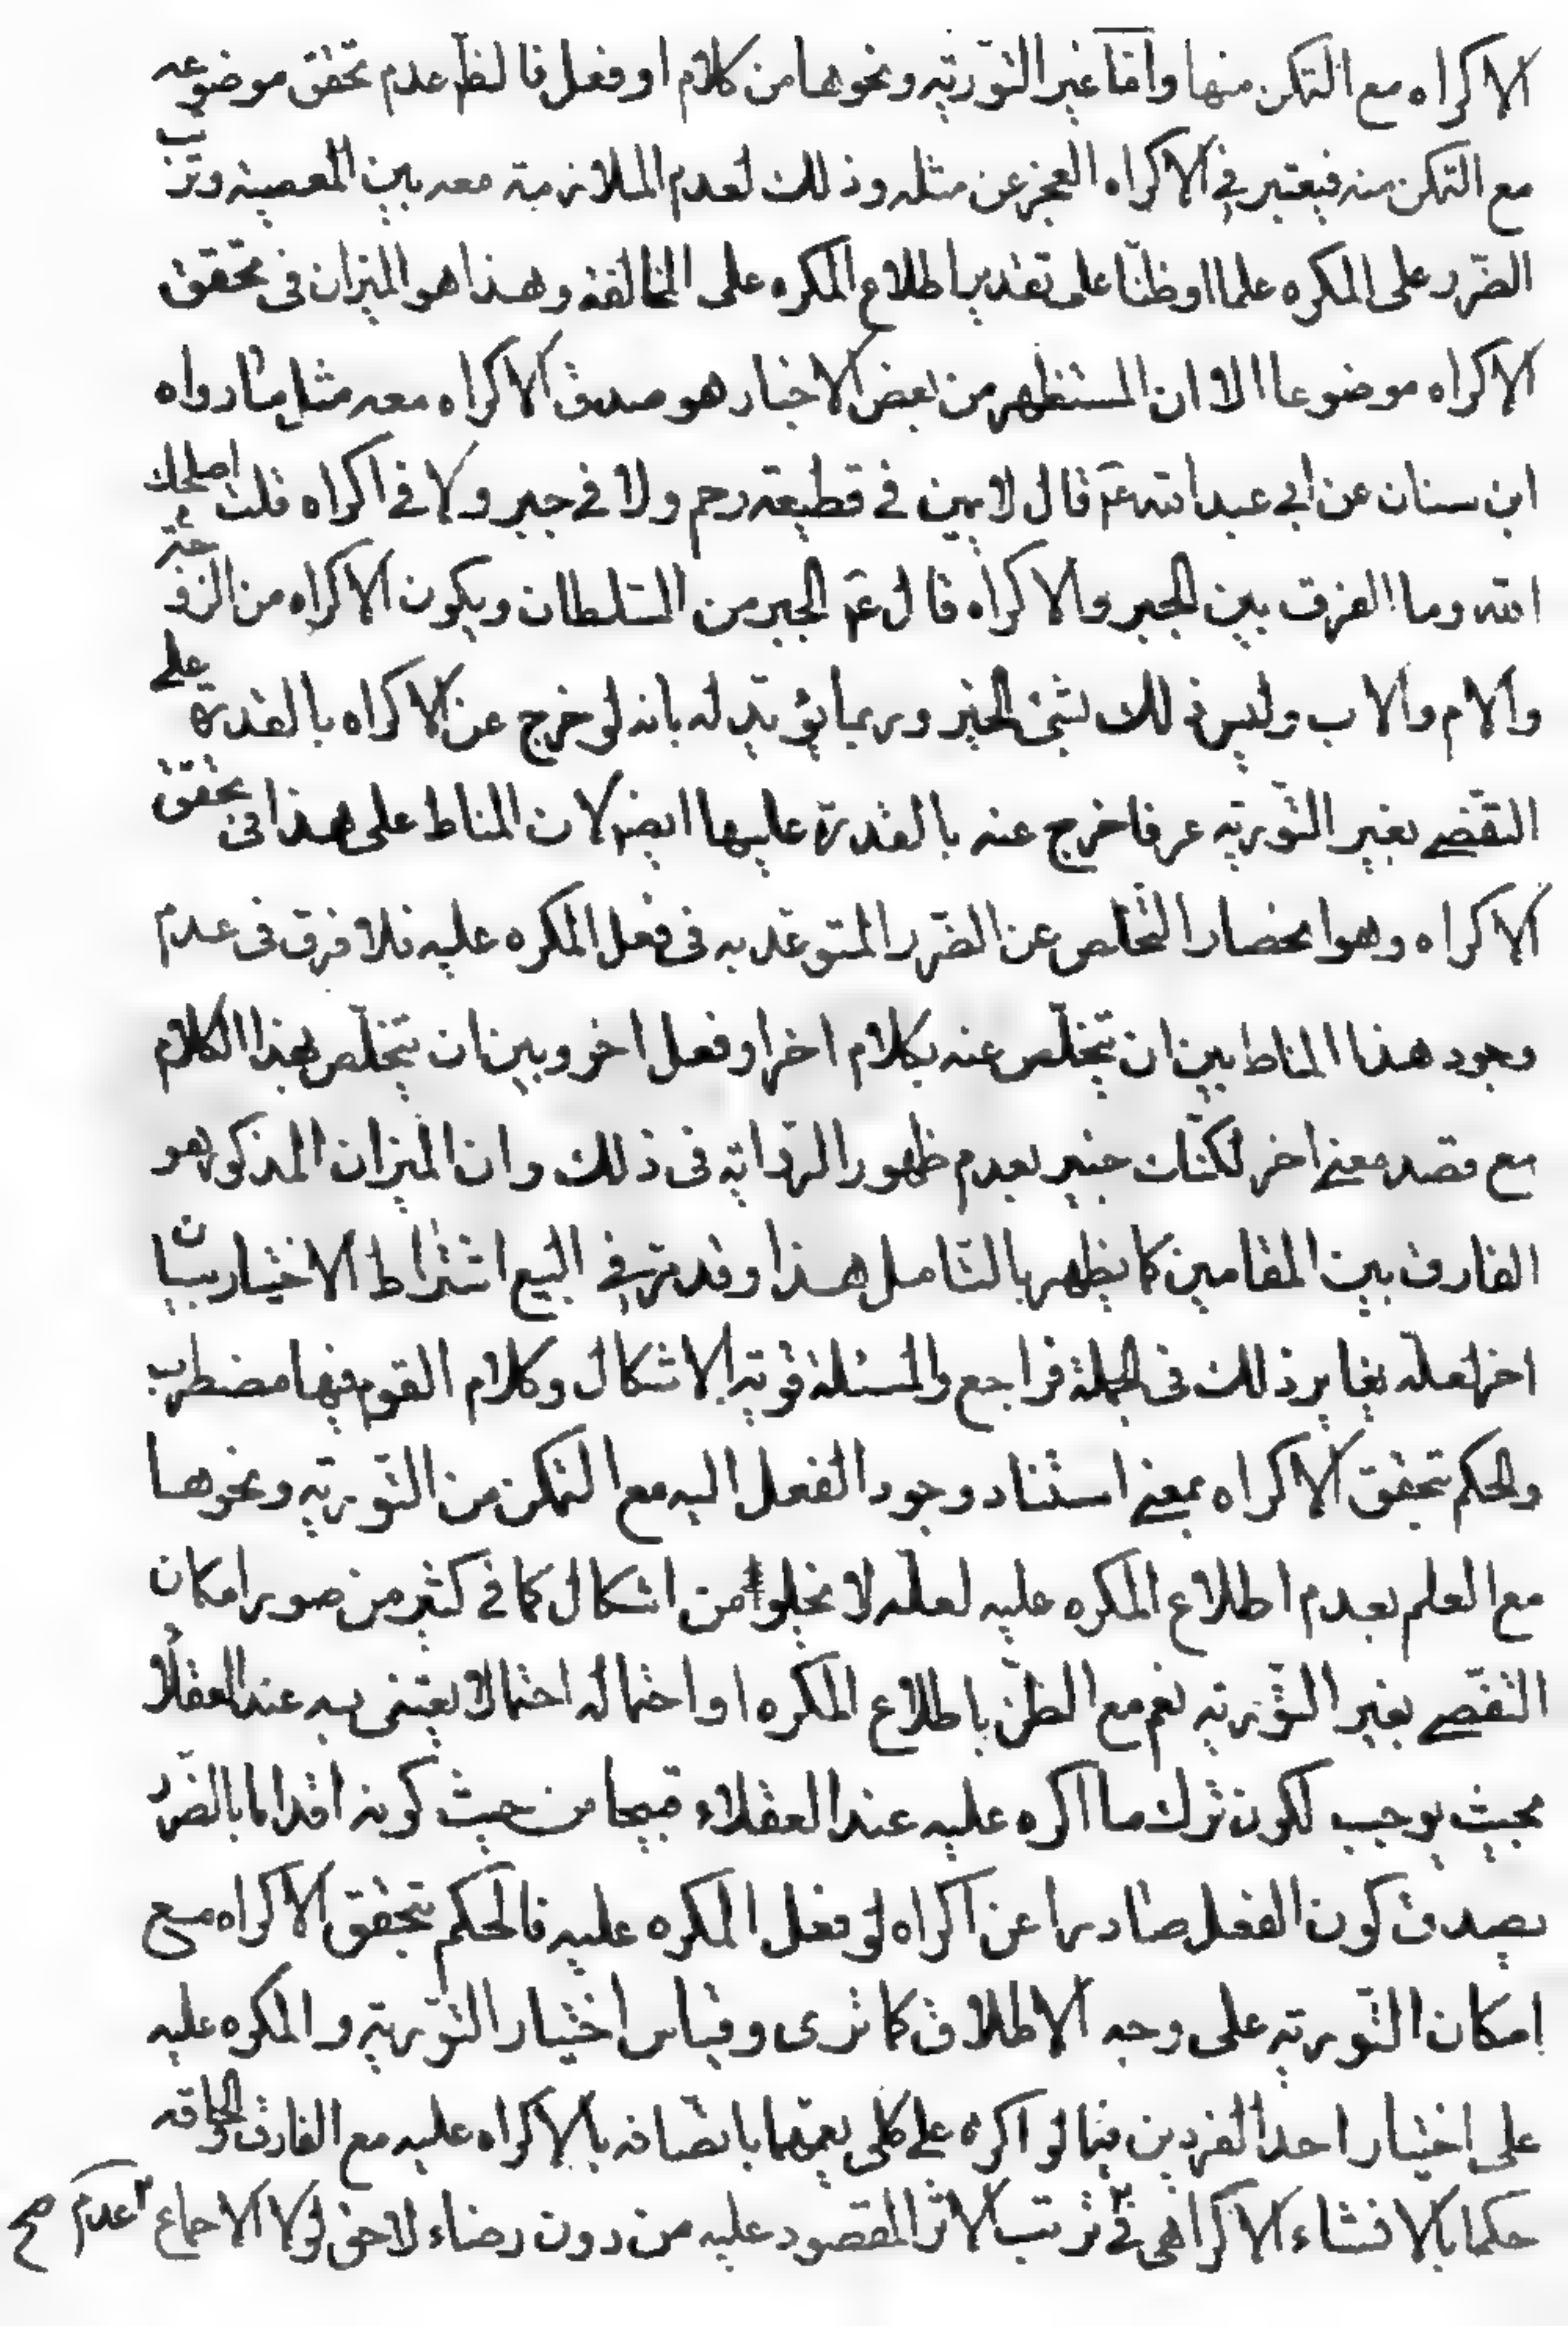 الاكراه مع التمكن منها وامّا غير التّورية ونحوها من كلام او فعل فالظّ عدم تحقق موضوعه
مع التمكن منه فيعتبر في الاكراه العجز عن مثله وذلك لعدم الملازمة معه بين المعصية وترتّب
الضّرر على المكره علما او ظنّا على تقدير اطلاع المكره على المخالفة وهذا هو الميزان فى تحقق
الاكراه موضوعا الا ان المستظهر من بعض الاخبار هو صدق الاكراه معه مثل ما رواه
ابن سنان عن ابي عبد الله عَ قال لا يمين في قطيعة رحم ولا في جبر ولا في اكراه قلت اصلحك
الله وما الفرق بين الجبر والاكراه قال عَ الجبر من السّلطان ويكون الاكراه من الزوجة
والام والاب وليس ذلك بشئ الخبر وربما يؤيّد له بانه لو خرج عن الاكراه بالقدرة على
التفصّي بغير التّورية عرفا خرج عنه بالقدرة عليها ايضا لان المناط على هذا فى تحقق
الاكراه وهو انحصار التّخلص عن الضّرر المتوعّد به فى فعل المكره عليه فلا فرق فى عدم
وجود هذا المناط بين ان يتخلّص عنه بكلام اخر او فعل اخر وبين ان يتخلّص بهذا الكلام
مع قصد معنى اخر لكنّك خبير بعدم ظهور الرّواية فى ذلك وان الميزان المذكور هو
الفارق بين المقامين كما يظهر بالتّامل هذا وقد مرّ في البيع اشتراط الاختيار ببيان
اخر لعلّه يغاير ذلك فى الجملة فراجع والمسئلة قويّة الاشكال وكلام القوم فيها مضطرب
والحكم بتحقق الاكراه بمعنى استناد وجود الفعل اليه مع التمكن من التّورية ونحوها
مع العلم بعدم اطلاع المكره عليه لعلّه لا يخلوا من اشكال كما في كثير من صور امكان
التفصّي بغير التّورية نعم مع الظنّ باطلاع المكره او احتماله احتمالا يعتنى به عند العقلاء
بحيث يوجب لكون ترك ما اكره عليه عند العقلاء قبيحا من حيث كونه اقداما بالضّرر
يصدق كون الفعل صادرا عن اكراه لو فعل المكره عليه فالحكم بتحقق الاكراه مع
امكان التّورية على وجه الاطلاق كما ترى وقياس اختيار التّورية والمكره عليه
على اختيار احد الفردين فيما لو اكره على كلى يعمّهما باتّصافه بالاكراه عليه مع الفارق
حكما بالانشاء الاكراهى في ترتب الاثر المقصود عليه من دون رضاء لاحق لولا الاجماع عدم صح